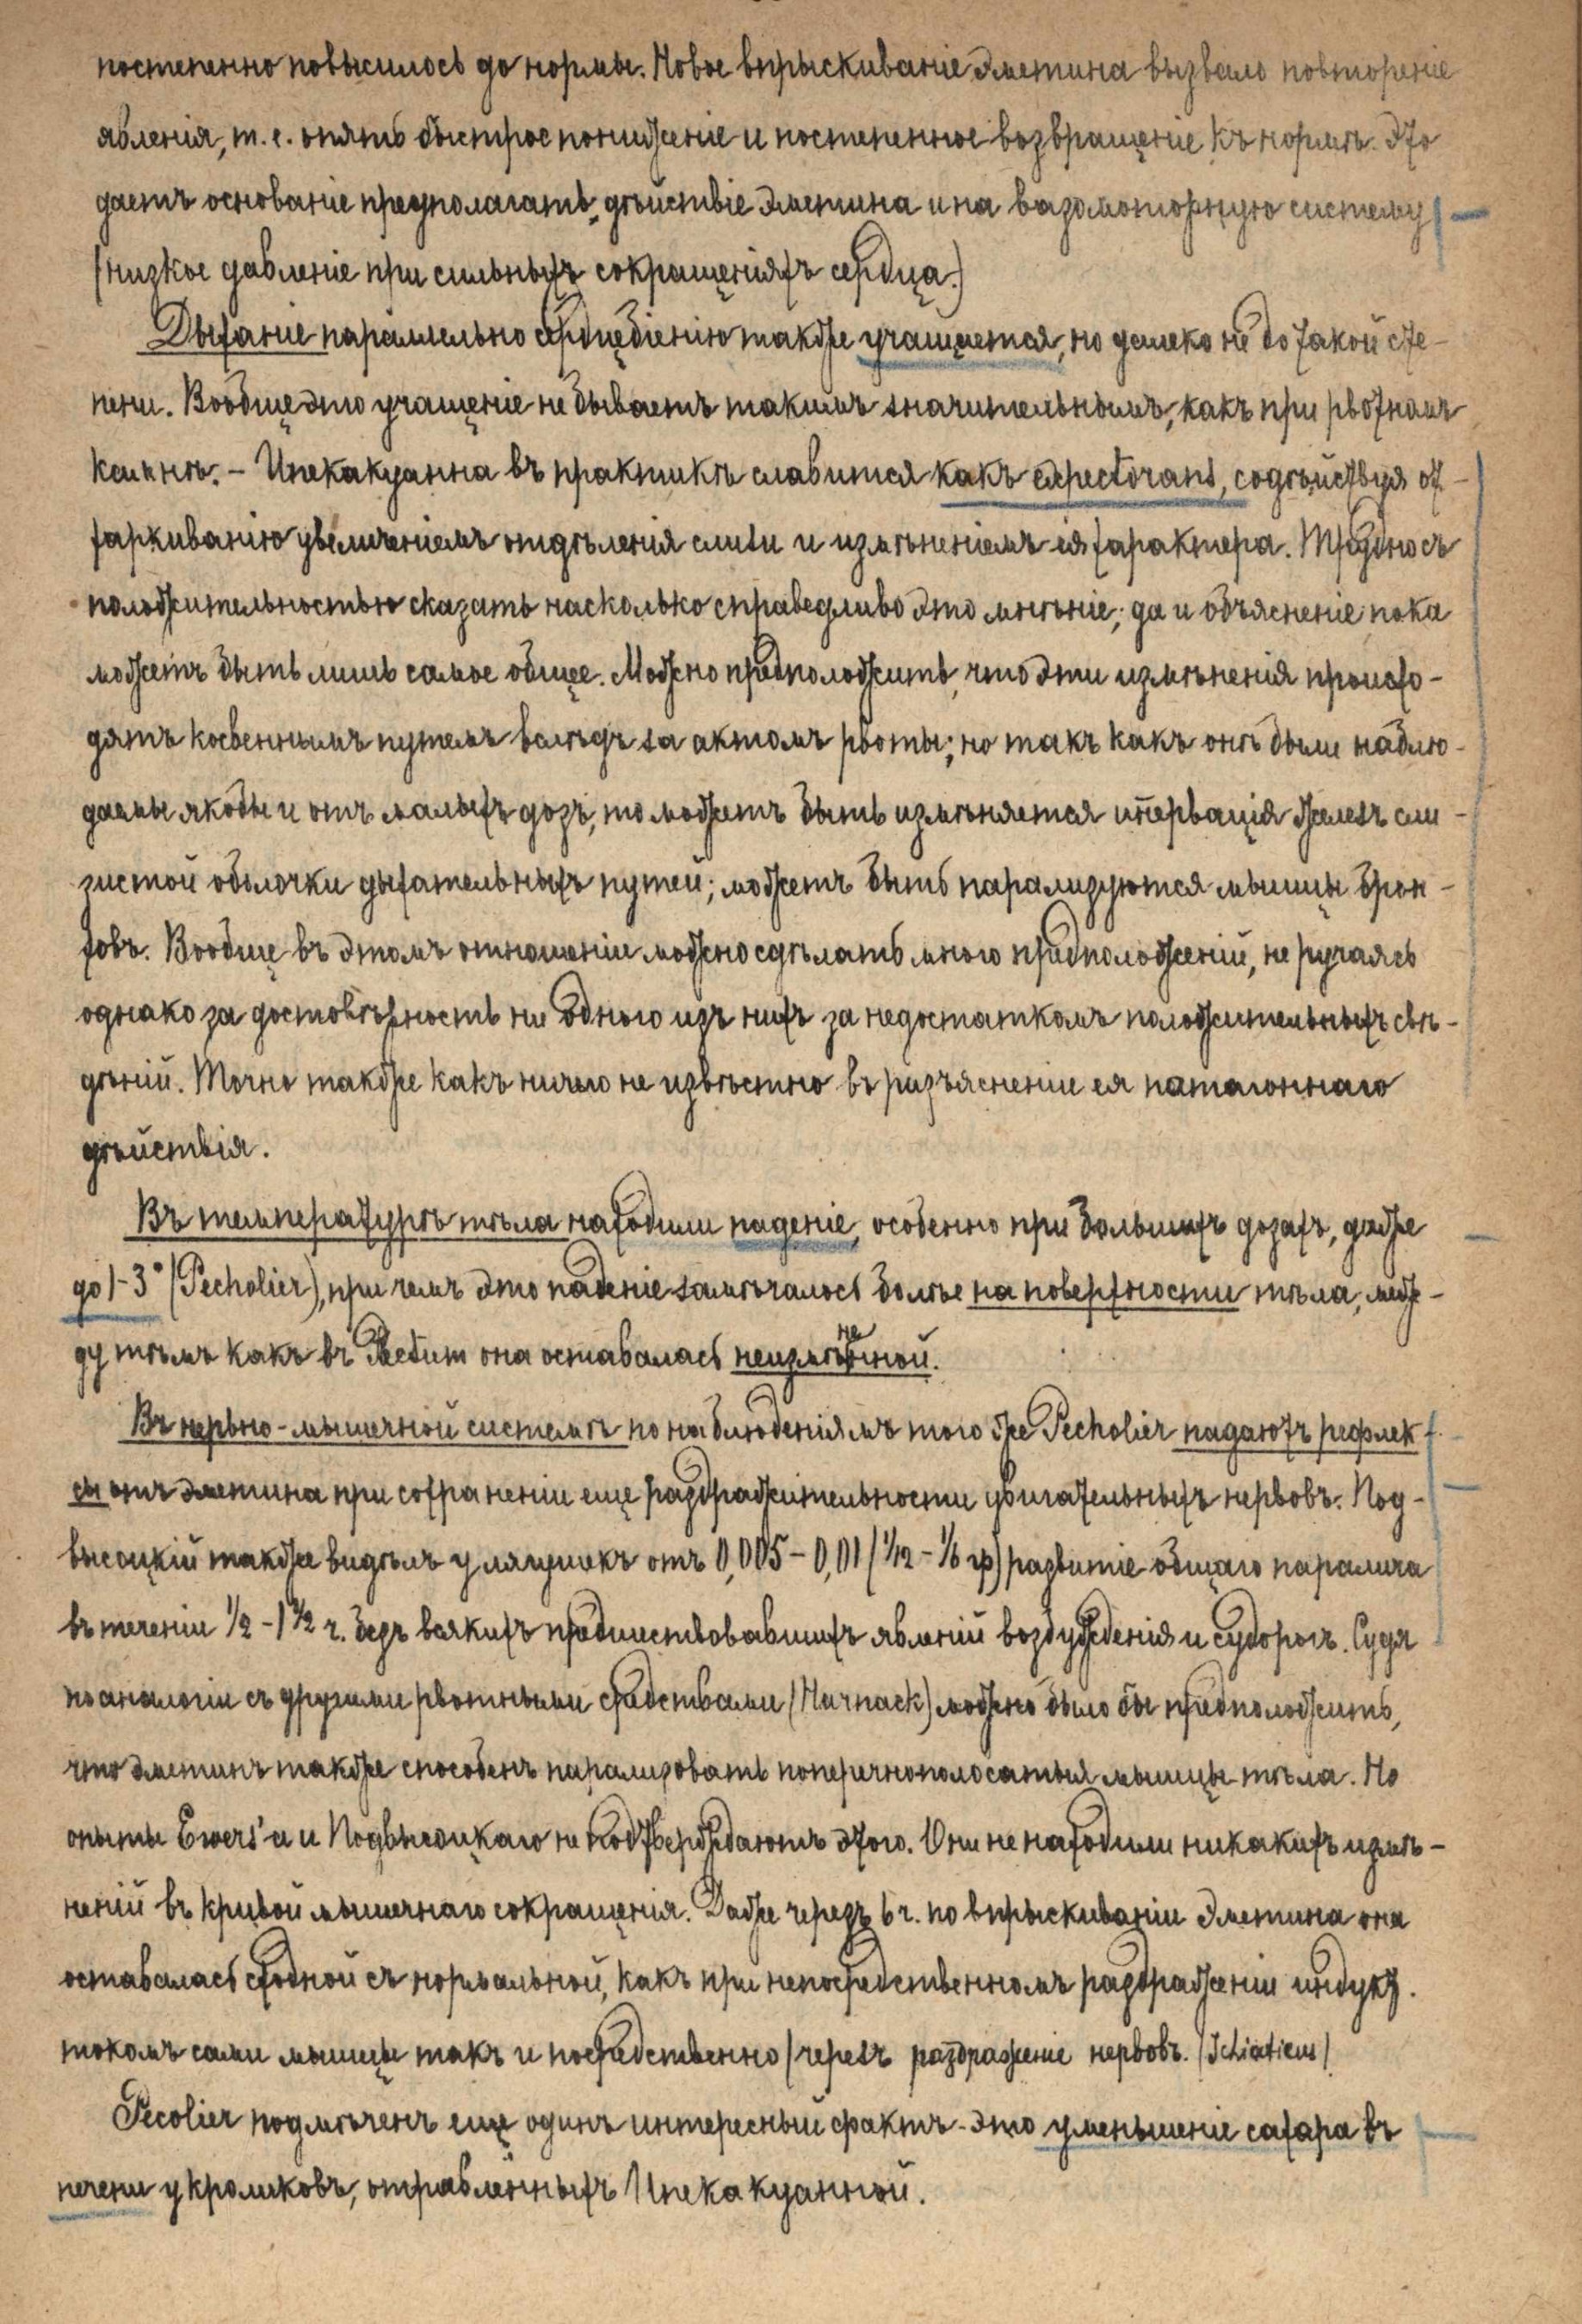 постепенно повысилось до нормы. Новое впрыскиваніе Эметина вызвало повтореніе
явленія, т. е. опять быстрое пониженіе и постепенное возвращеніе къ нормѣ. Это
даетъ основаніе предполагать дѣйствіе Эметина и на вазомоторную систему
(низкое давленіе при сильныхъ сокращеніяхъ сердца.)
Дыханіе параллельно сердцебіенію также учащается, но далеко не до такой сте-
пени. Вообще это учащеніе не бываетъ такимъ значительнымъ, какъ при рвотномъ
камнѣ. – Ипекакуанна въ практикѣ славится какъ expectorans, содѣйствуя от-
харкиванію увеличеніемъ отдѣленія слизи и измѣненіемъ ея характера. Трудно съ
положительностью сказать насколько справедливо это мнѣніе; да и объясненіе пока
можетъ быть лишь самое общее. Можно предположить, что эти измѣненія происхо-
дятъ косвеннымъ путемъ вслѣдъ за актомъ рвоты; но такъ какъ онѣ были наблю-
даемы якобы и отъ малыхъ дозъ, то можетъ быть измѣняется инервація железъ сли-
зистой оболочки дыхательныхъ путей; можетъ быть парализуются мышцы брон-
ховъ. Вообще въ этомъ отношеніи можно сдѣлать много предположеній, не ручаясь
однако за достовѣрность ни одного изъ нихъ за недостаткомъ положительныхъ свѣ-
дѣній. Точно также какъ ничего не извѣстно въ разъясненіе ея потогоннаго
дѣйствія.
Въ температурѣ тѣла находили паденіе, особенно при большихъ дозахъ, даже
до 1-3° (Pecholier), при чемъ это паденіе замѣчалось болѣе на поверхности тѣла, меж-
ду тѣмъ какъ въ Rectum она оставалась неизмѣнной.
Въ нервно-мышечной системѣ по наблюденіямъ того же Pecholier падаютъ рефлек-
сы отъ эметина при сохраненіи еще раздражительности двигательныхъ нервовъ. Под-
высоцкій также видѣлъ у лягушекъ отъ 0,005 – 0,01 (1/12 – 1/6 гр) развитіе общаго паралича
въ теченіи 1/2 – 1 1/2 ч. безъ всякихъ предшествовавшихъ явленій возбужденія и судорогъ. Судя
по аналогіи съ другими рвотными средствами (Harnack) можно было бы предположить,
что эметинъ также способенъ парализовать поперечнополосатыя мышцы тѣла. Но
опыты Ewers'а и Подвысоцкаго не подтверждаютъ этого. Они не находили никакихъ измѣ-
неній въ кривой мышечнаго сокращенія. Даже черезъ 6 ч. по впрыскиваніи Эметина она
оставалась сходной съ нормальной, какъ при непосредственномъ раздраженіи индукт.
токомъ самой мышцы такъ и посредственно (черезъ раздраженіе нервовъ. (Ischiaticus)
Pecolier подмѣченъ еще одинъ интересный фактъ - это уменьшеніе сахара въ
печени у кроликовъ, отравленныхъ Ипекакуанной.